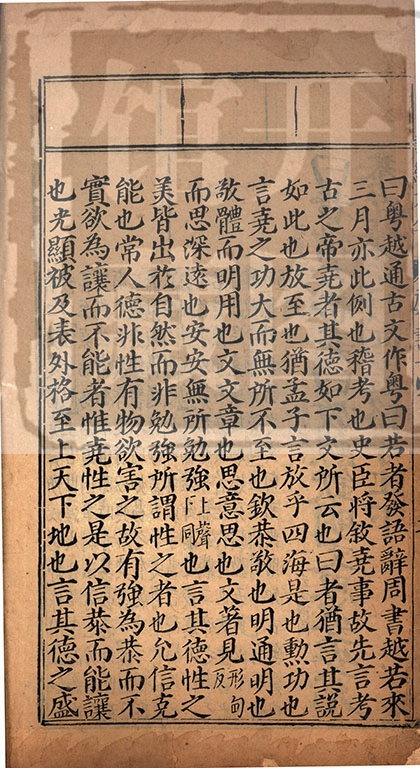 曰粤越通古文作粤曰若者發語辭周書越若來
三月亦此例也稽考也史臣將敘堯事故先言考
古之帝堯者其德如下文所云也曰者猶言其說
如此也放至也猶孟子言放乎四海是也勲功也
言堯之功大而無所不至也欽恭敬也明通明也
敬體而明用也文文章也思意思也文著見形甸反
而思深遠也安安無所勉強上聲下同也言其德性之
美皆出於自然而非勉強所謂性之者也允信克
能也常人德非性有物欲害之故有強為恭而不
實欲為讓而不能者惟堯性之是以信恭而能讓
也光顯被及表外格至上天下地也言其德之盛